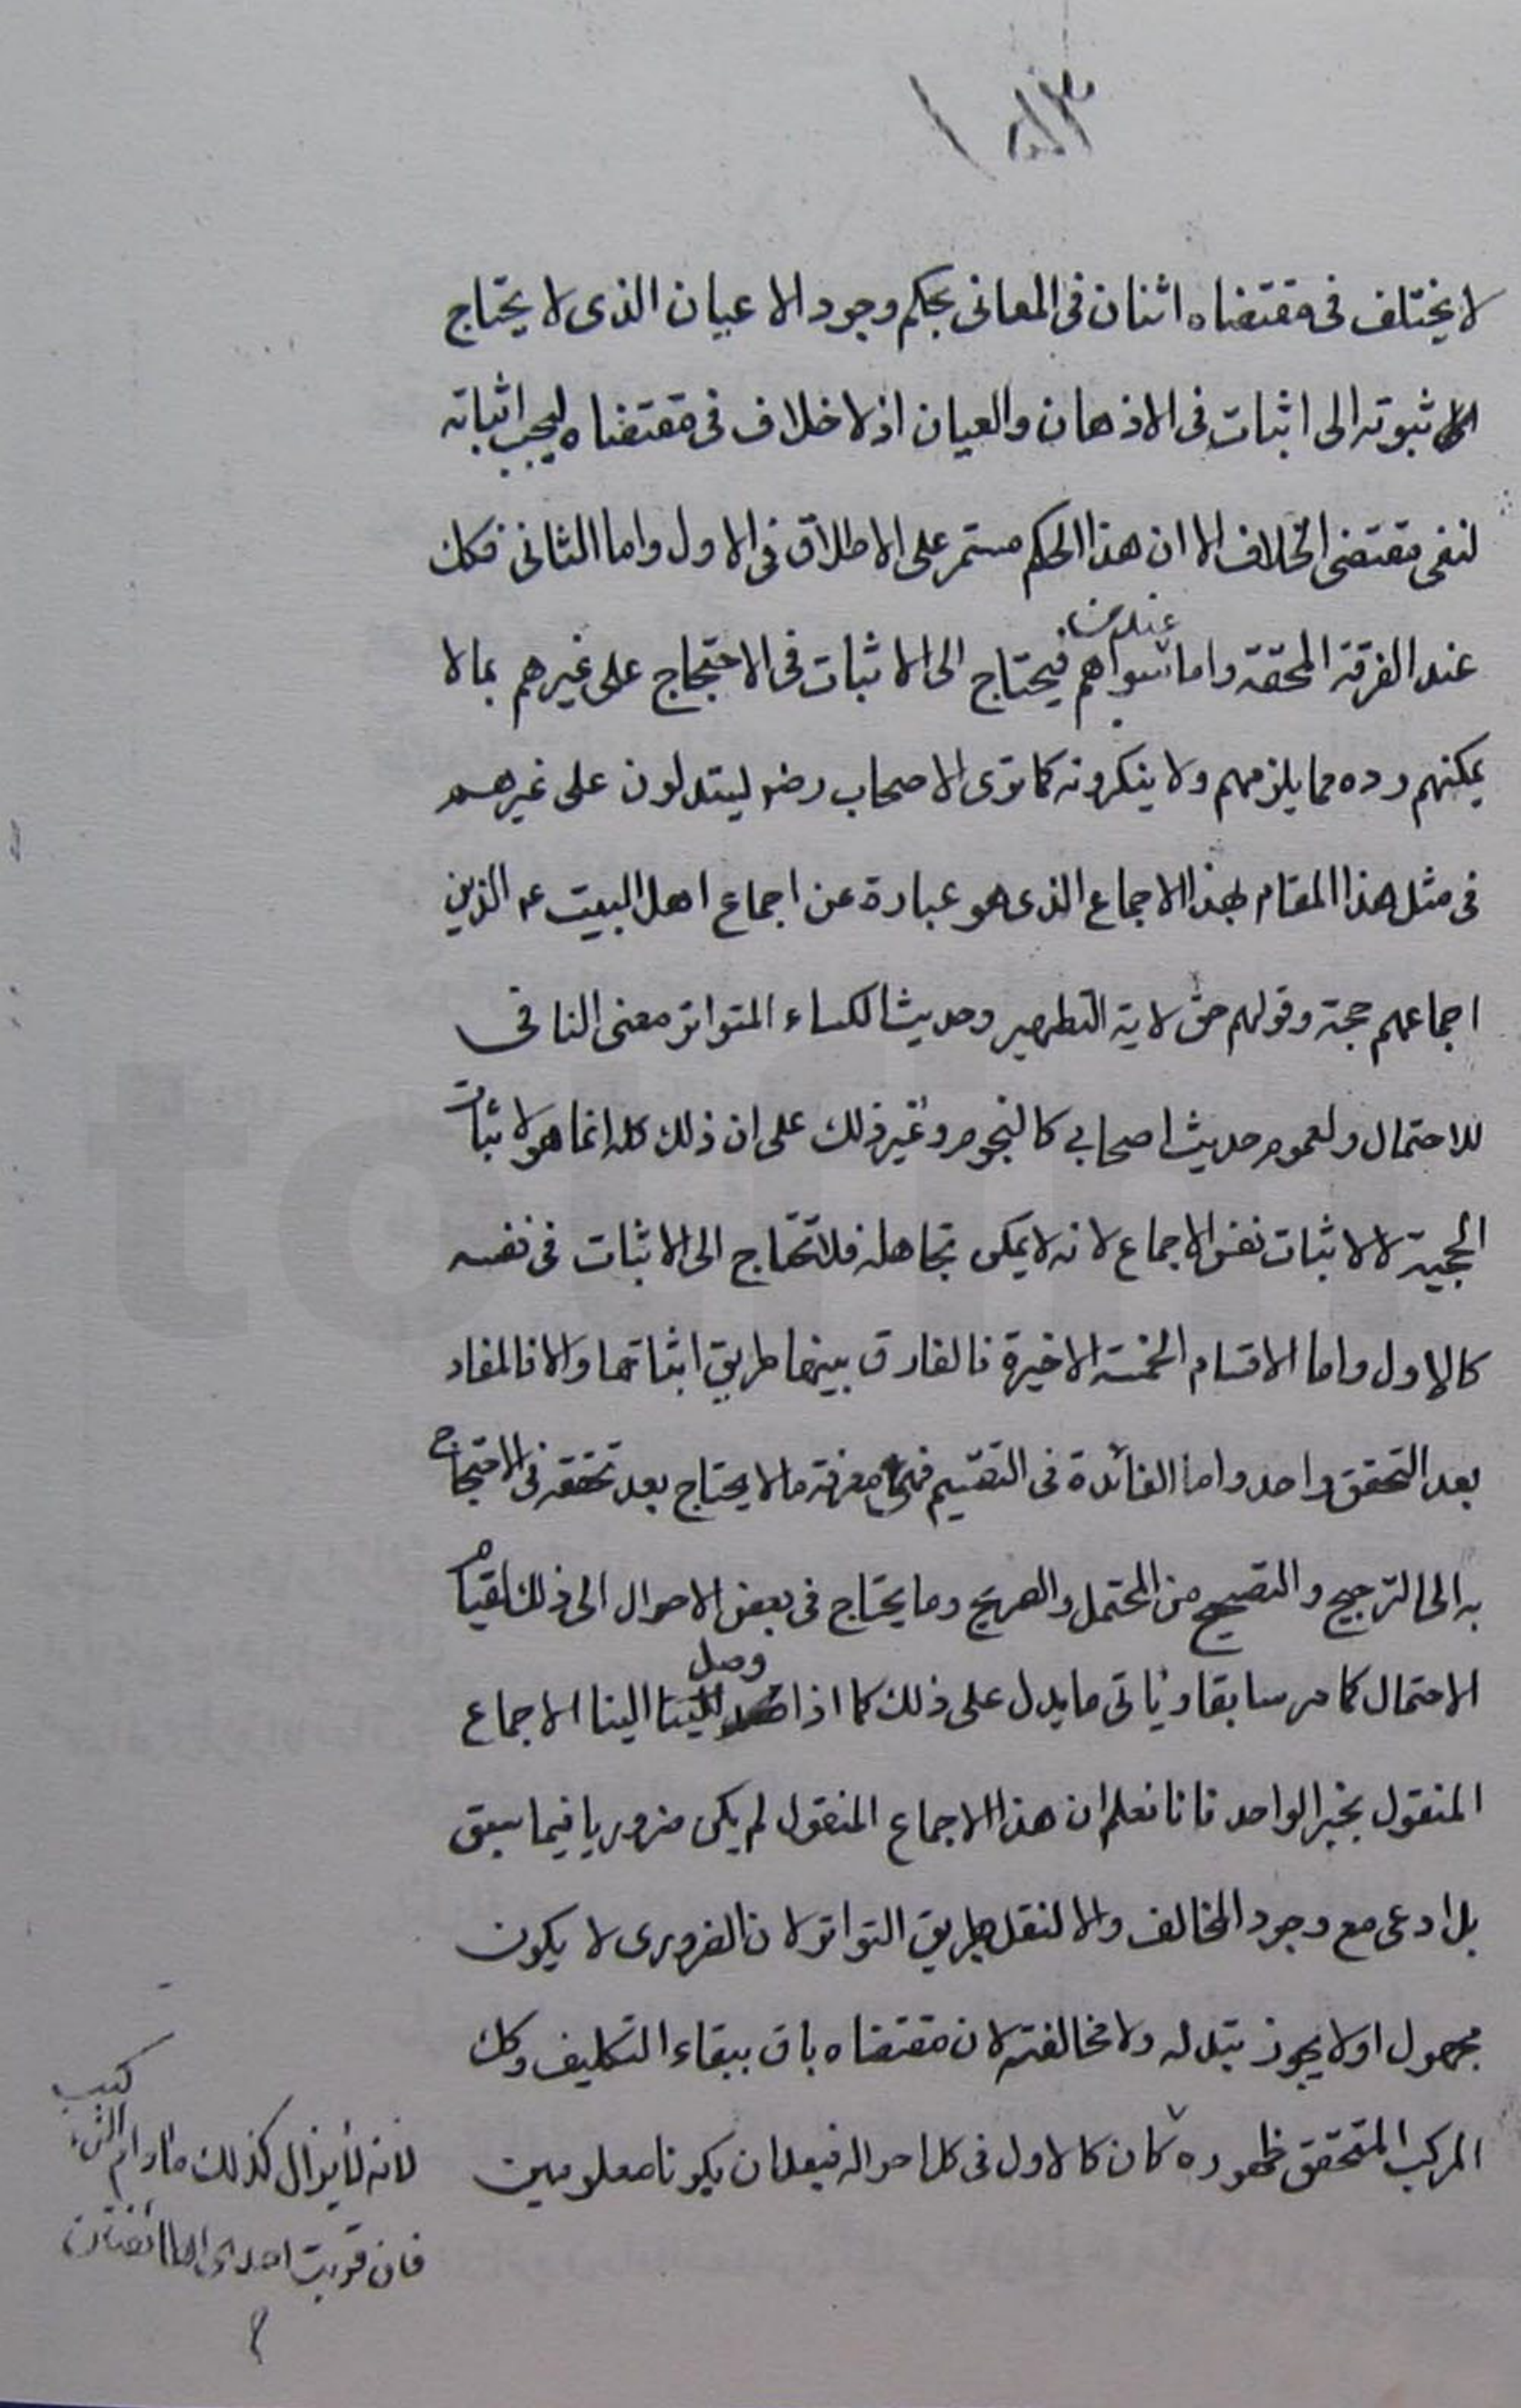 لا يختلف فى مقتضاه اثنان فى المعانى بحكم وجود الاعيان الذى لا يحتاج
ثبوته الى اثبات فى الاذهان والعيان اذ لا خلاف فى مقتضاه ليجب اثباته
لنفى مقتضى الخلاف الا ان هذا الحكم مستمر على الاطلاق فى الاول واما الثانى فكك
عند الفرقة المحقة واما عند من سواهم فيحتاج الى الاثبات فى الاحتجاج على غيرهم بما لا
يمكنهم رده مما يلزمهم ولا ينكرونه كما ترى الاصحاب رضو ليتدلون على غيرهم
فى مثل هذا المقام بهذا الاجماع الذى هو عبارة عن اجماع اهل البيت عم الذين
اجماعهم حجة وقولهم حق لاية التطهير وحديث الكساء المتواتر معنى النافى
للاحتمال ولعموم حديث اصحابي كالنجوم وغير ذلك على ان ذلك كله انما هو لاثبات
الحجية لا لاثبات نفس الاجماع لانه لا يمكن تجاهله فلا تحتاج الى الاثبات فى نفسه
كالاول واما الاقسام الخمسة الاخيرة فالفارق بينها طريق اثباتها والا فالمفاد
بعد التحقق واحد واما الفائدة فى التقسيم فهى معرفة ما لا يحتاج بعد تحققه فى الاحتجاج
به الى الترجيح والتصحيح من المحتمل والصريح وما يحتاج فى بعض الاحوال الى ذلك لقيام
الاحتمال كما مر سابقا وياتى ما يدل على ذلك كما اذا وصل الينا الاجماع
المنقول بخبر الواحد فانا نعلم ان هذا الاجماع المنقول لم يكن ضروريا فيما سبق
بل ادعى مع وجود المخالف والا لنقل بطريق التواتر لان الضرورى لا يكون
مجهولا ولا يجوز تبدله ولا مخالفته لان مقتضاه باق ببقاء التكليف وكك
المركب المتحقق ظهوره كان كالاول فى كل احواله فبعد ان يكونا معلومين
لانه لا يزال كذلك مادام
فان قربت احدى الطائفتان